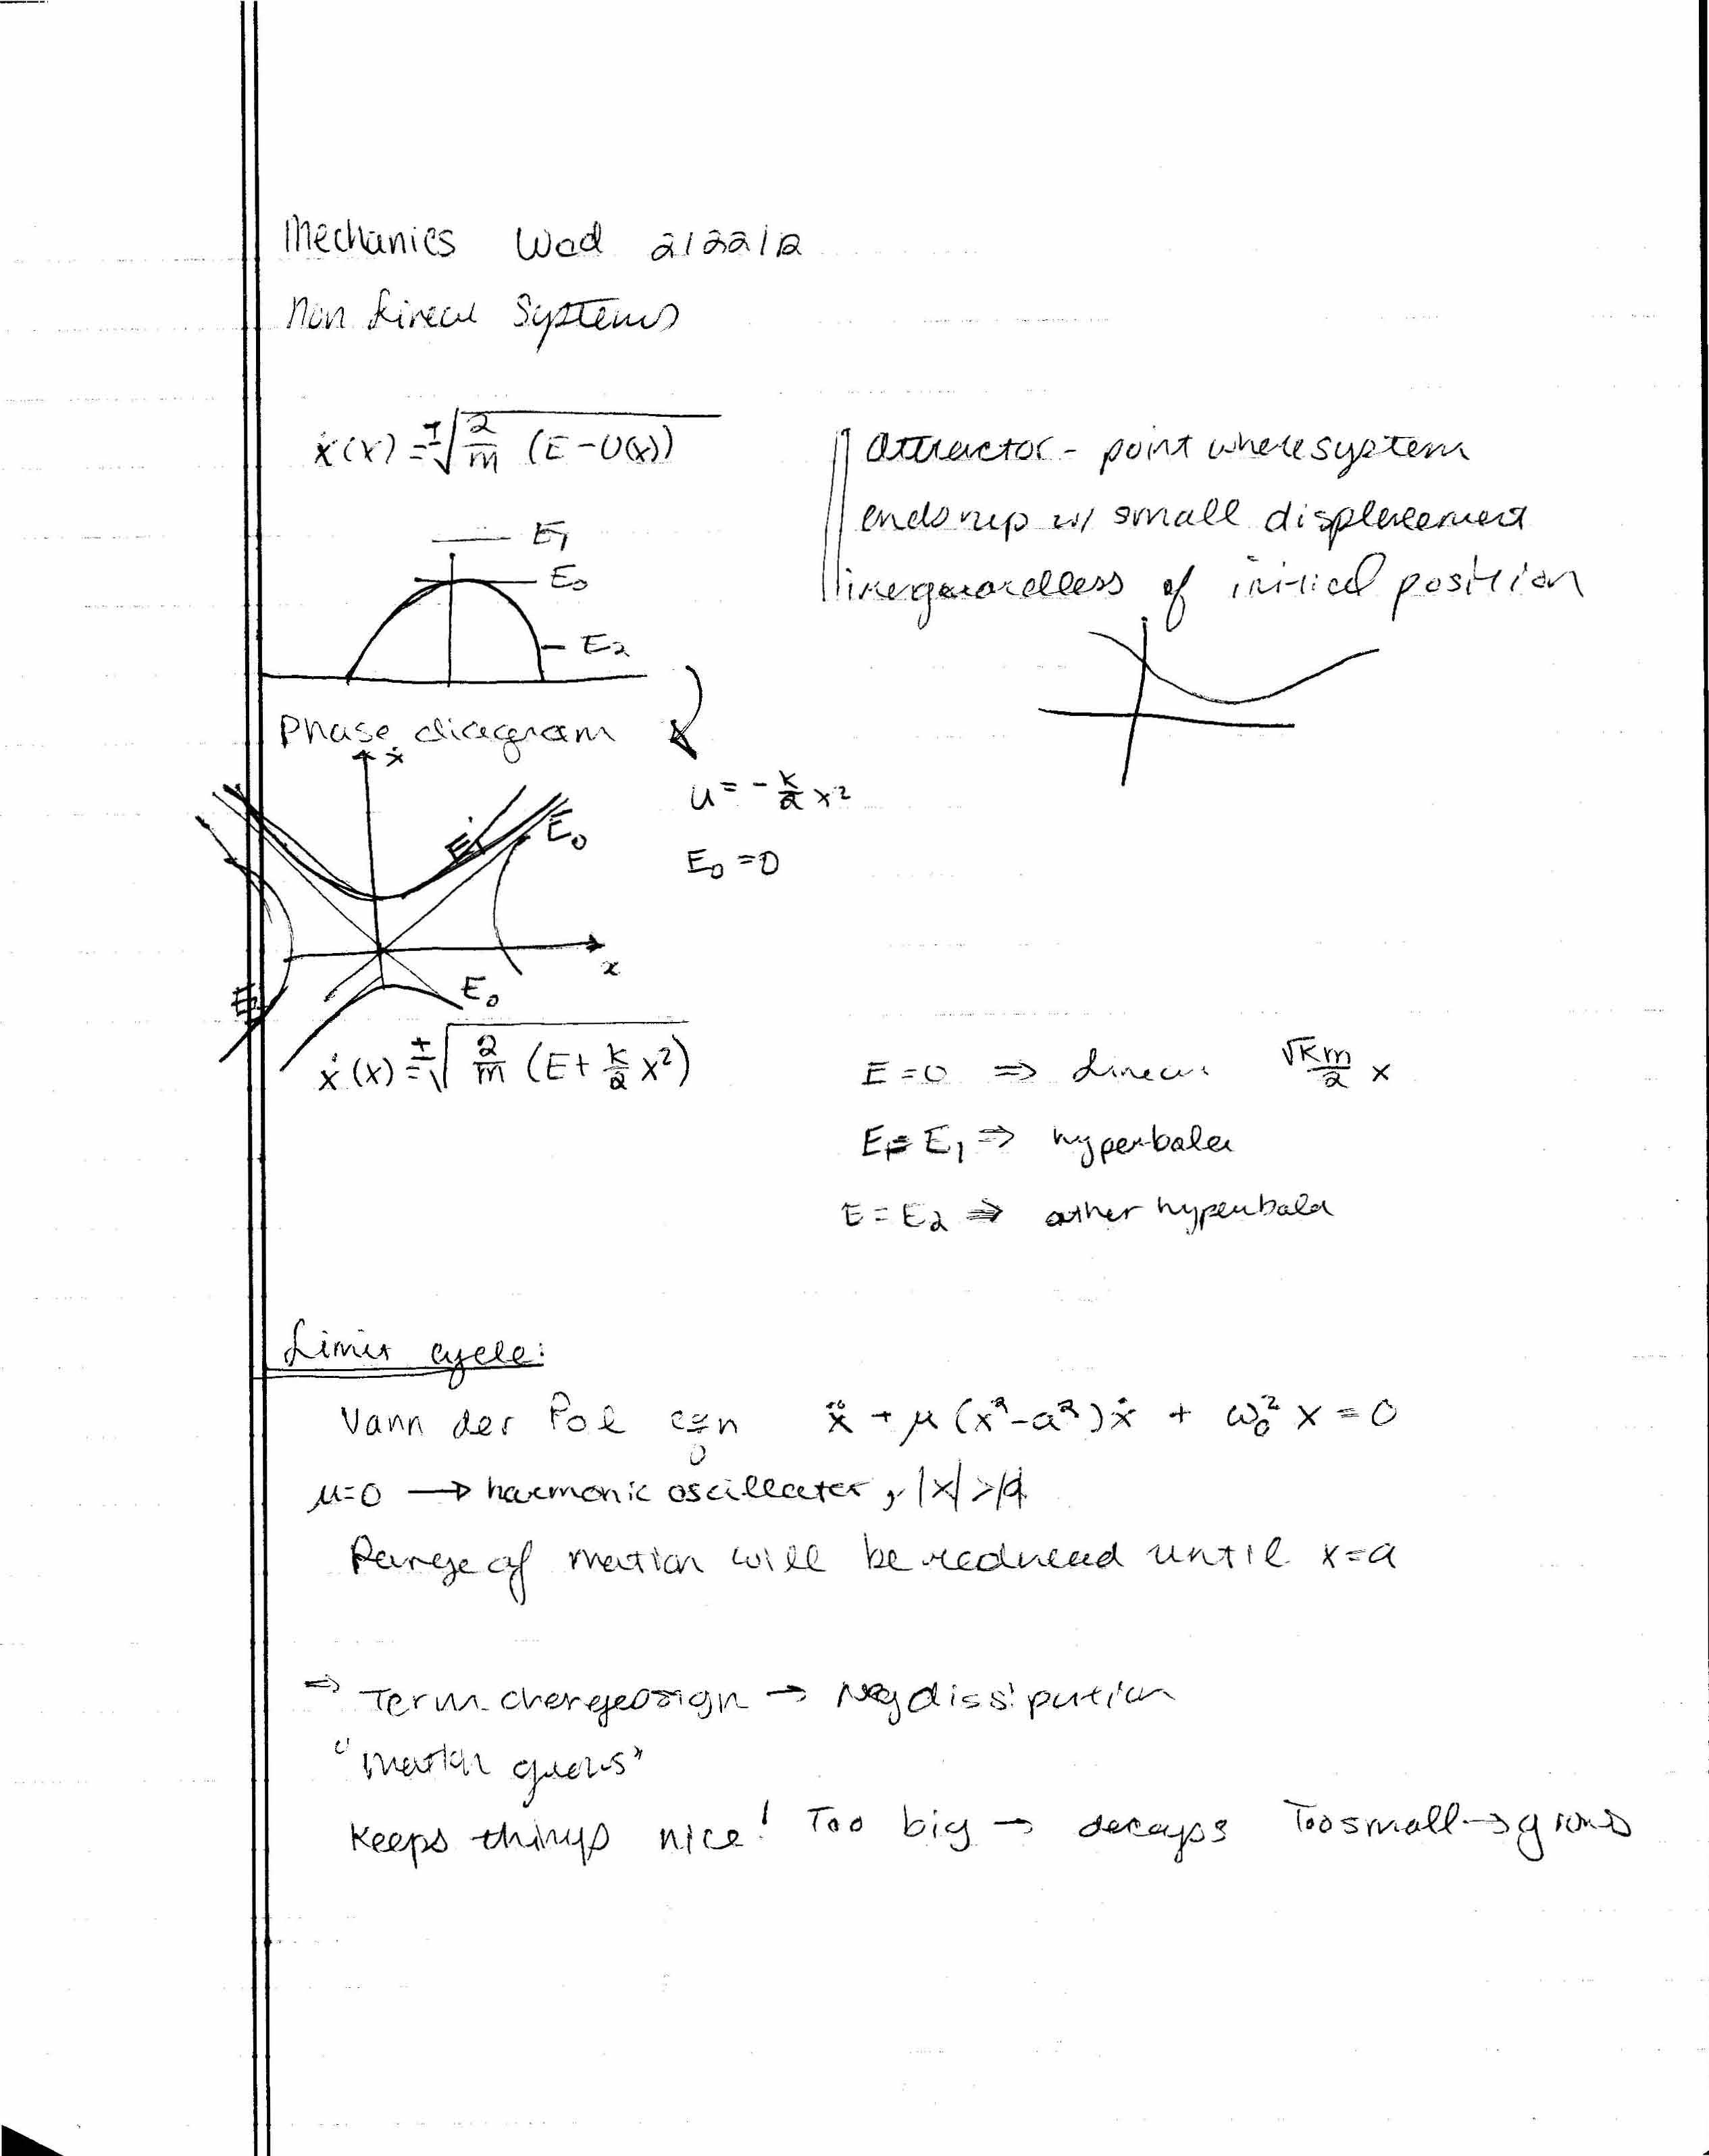 Mechanics Wed 2/22/12
Non Linear Systems
ẋ(x) = ±√(2/m (E - U(x)))
Attractor - point where system
ends up w/ small displacement
irregardless of initial position
E₁
E₀
E₂
Phase diagram
ẋ
E₁
E₀
U = - k/2 x²
E₀ = 0
x
E₀
E₂
ẋ(x) = ±√(2/m (E + k/2 x²))
E = 0 ⇒ Linear √km/2 x
E = E₁ ⇒ hyperbola
E = E₂ ⇒ other hyperbola
Limit cycle:
Vann der Pol eqn ẍ + μ(x² - a²)ẋ + ω₀² x = 0
μ=0 → harmonic oscillator, |x| > |a|
Range of motion will be reduced until x=a
⇒ Term changes sign → Neg dissipation
"motion grows"
Keeps things nice! Too big → decays Too small → grows